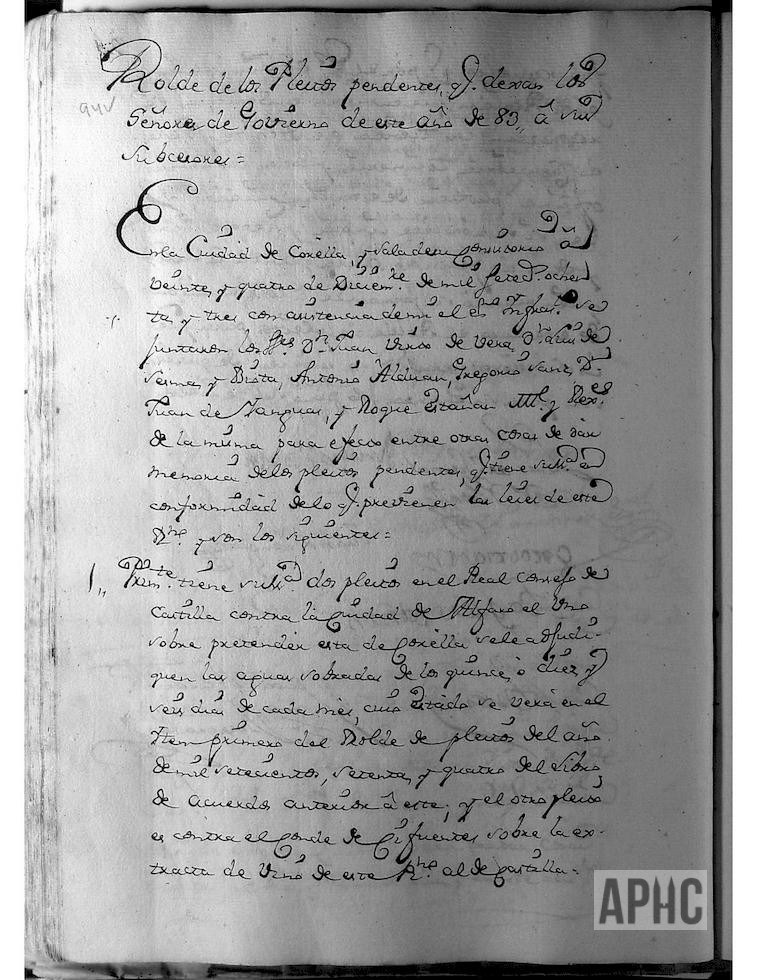 Rolde de los Pleitos pendentes, q.e dexan los
94v
Señores de Govierno de este año de 83,, â sus
subcesores=
En la Ciudad de Corella, y sala de su Consistorio â
veinte, y quatro de Diciem.re de mil sete.s ochen
ta, y tres con asistencia de mi el es.no Infras.to se
juntaron los Sres. D.n Juan Virto de Vera, D.n Luis de
Sesma, y Beota, Antonio Alduan, Gregorio Sanz, D.n
Juan de y Roque Estañan All.e y Rex.es
de la misma para efecto entre otras cosas de dar
memoria de los pleitos pendentes, q.e tiene su Mag.d en
conformidad de lo q.e previenen las leies de este
R.no y son los siguientes=
1,, Prim.te tiene su M.d dos pleitos en el Real Consejo de
Castilla contra la Ciudad de Alfaro el Uno
sobre pretender esta de Corella se le adjudi-
quen las aguas sobradas de los quince, o diez, y
seis dias de cada mes, cuio Estado se verá en el
Item primero del Rolde de pleitos del año
de mil setecientos, setenta, y quatro del Libro
de acuerdos anterior â este; y el otro pleito
es contra el Conde de Cifuentes sobre la ex-
tracta de Vino de este R.no al de Castilla=
APHC